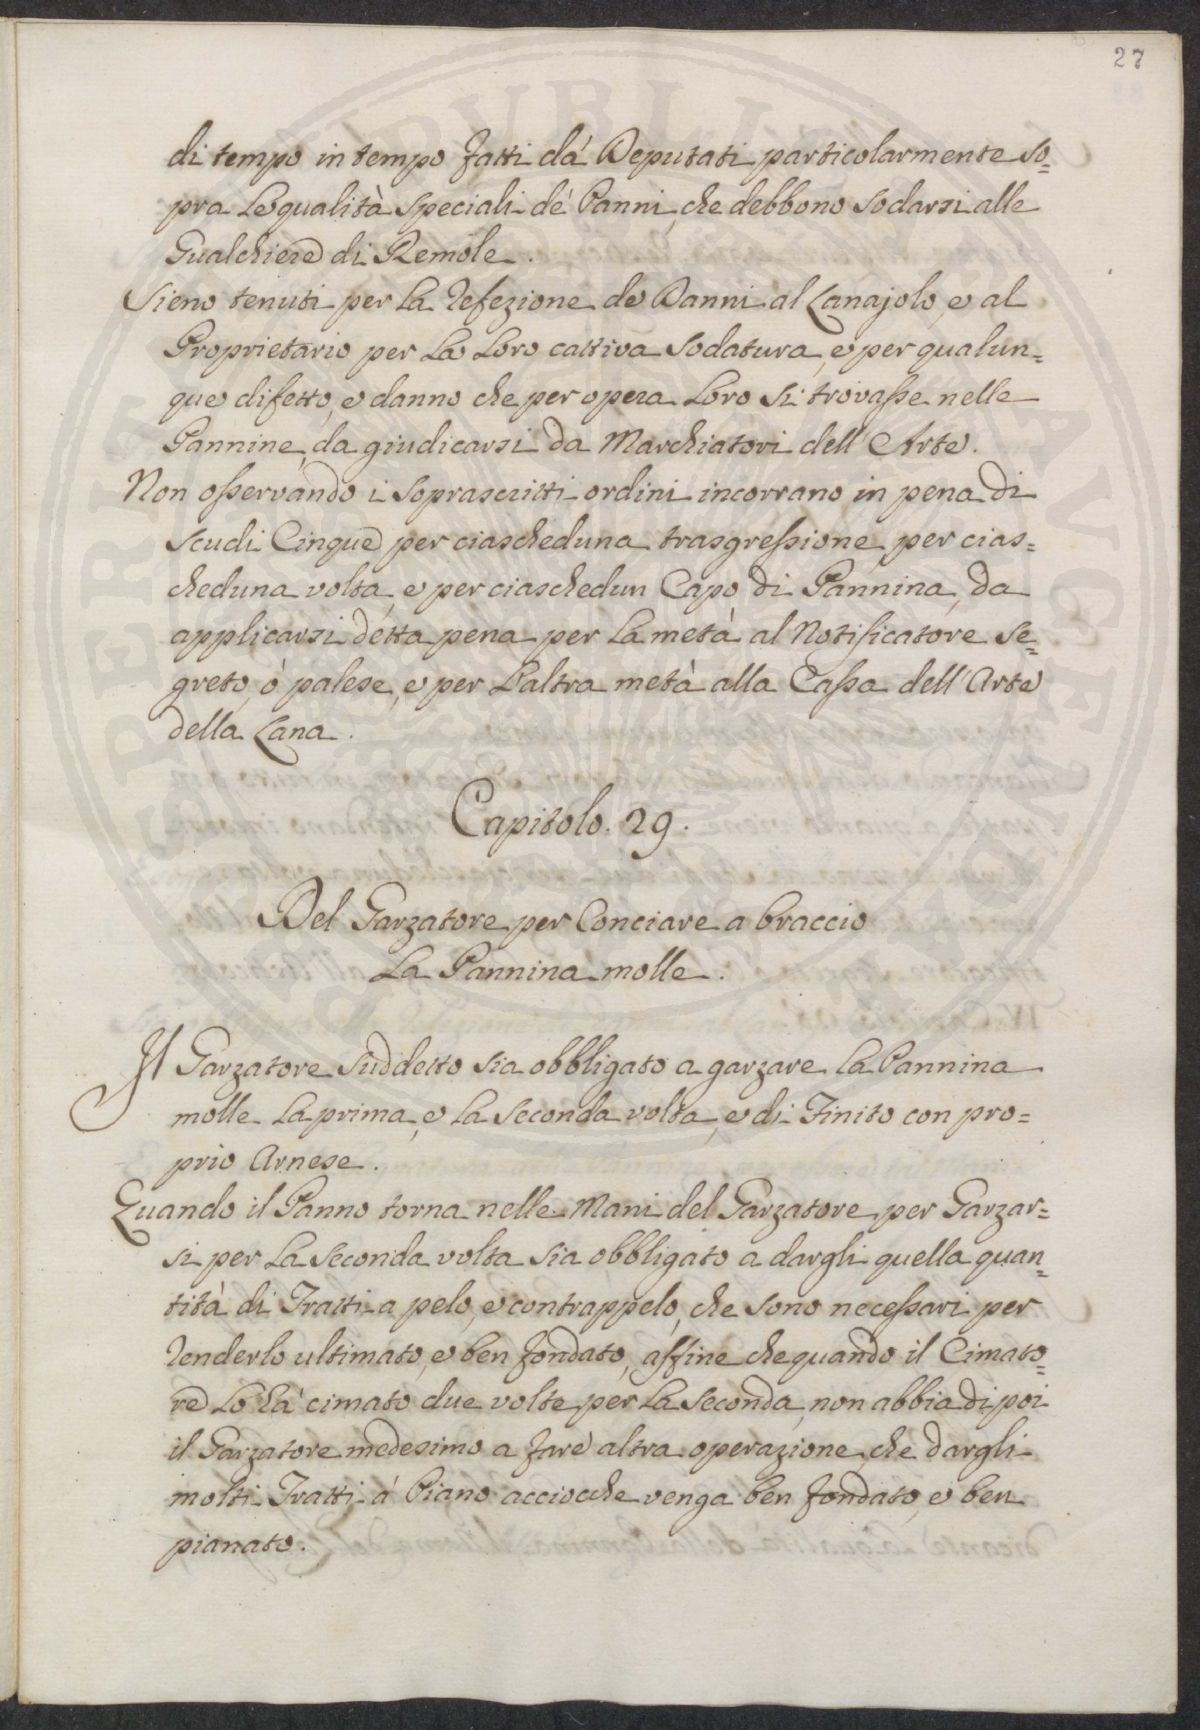 27
di tempo in tempo fatti da' Deputati particolarmente so=
pra le qualità speciali de' Panni, che debbono sodarsi alle
Gualchiere di Remole.
Sieno tenuti per la refezione de Danni al Lanajolo, e al
Proprietario per la loro cattiva sodatura, e per qualun=
que difetto, e danno che per opera loro si trovasse nelle
Pannine, da giudicarsi da Marchiatori dell'Arte.
Non osservando i soprascritti ordini incorrano in pena di
scudi Cinque per ciascheduna trasgressione per cias=
cheduna volta, e per ciaschedun Capo di Pannina, da
applicarsi detta pena per la metà al Notificatore se=
greto, ò palese, e per l'altra metà alla Cassa dell'Arte
della Lana.
Capitolo. 29.
Del Garzatore per Conciare a braccio
La Pannina molle.
Il Garzatore suddetto sia obbligato a garzare la Pannina
molle la prima, e la seconda volta, e di Finito con pro=
prio Arnese.
Quando il Panno torna nelle Mani del Garzatore per Garzar=
si per la seconda volta sia obbligato a dargli quella quan=
tità di Tratti a pelo, e contrappelo, che sono necessari per
renderlo ultimato, e ben fondato, affine che quando il Cimato=
re lo hà cimato due volte per la seconda, non abbia di poi
il Garzatore medesimo a fare altra operazione, che dargli
molti Tratti à Piano acciocche venga ben fondato, e ben
pianato.